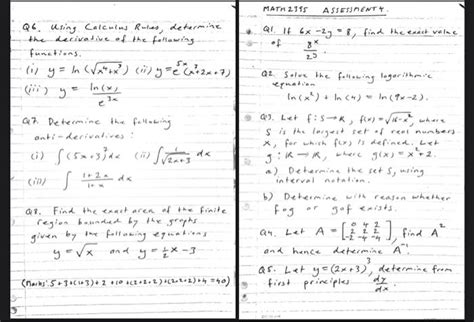 Q6. Using Calculus Rules, determine
the derivative of the following
functions.
(i) y = ln(√x⁴+x³) (ii) y = e⁵ˣ(x²+2x+7)
(iii) y = ln(x)/e³ˣ
Q7. Determine the following
anti-derivatives:
(i) ∫(5x+3)⁷dx (ii) ∫1/√2x+3 dx
(iii) ∫ 1+2x/1+x dx
Q8. Find the exact area of the finite
region bounded by the graphs
given by the following equations
y = √x and y = ½x - 3
(Marks: 5+3+(1+3)+2+10+(2+2+2)+(2+2+2)+4=40)
MATH2395 ASSESSMENT 4.
Q1. If 6x - 2y = 8, find the exact value
of 8ˣ/2ʸ
Q2. Solve the following logarithmic
equation
ln(x²) + ln(4) = ln(9x-2).
Q3. Let f: S→ℝ, f(x) = √16-x², where
S is the largest set of real numbers
x, for which f(x) is defined. Let
g: ℝ→ℝ, where g(x) = x+2.
a) Determine the set S, using
interval notation.
b) Determine with reason whether
fog or gof exists.
Q4. Let A = , find A²
and hence determine A⁻¹.
Q5. Let y = (2x+3)³, determine from
first principles dy/dx